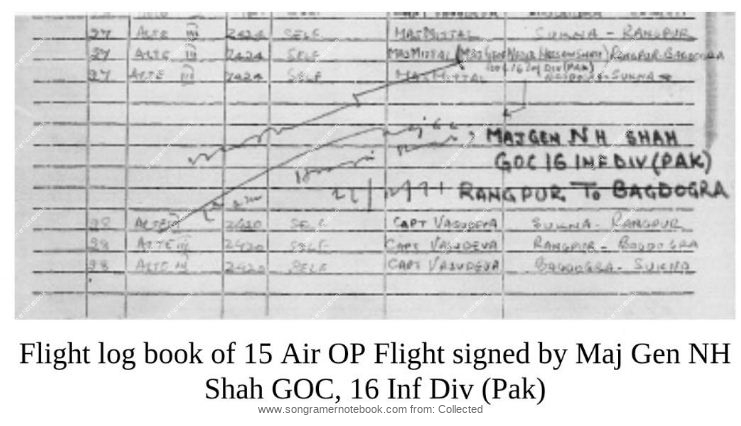 27 ALTE III 2424 SELF MAJ MITTAL SUKNA - RANGPUR
27 ALTE III 2424 SELF MAJ MITTAL (MAJ GEN NAZIR HASSAN SHAH) RANGPUR-BAGDOGRA
GOC 16 INF DIV (PAK)
27 ALTE III 2424 SELF MAJ MITTAL - SUKNA
MAJ GEN N H SHAH
GOC 16 INF DIV (PAK)
RANGPUR TO BAGDOGRA
28 ALTE III 2420 SELF CAPT VASUDEVA SUKNA - RANGPUR
28 ALTE III 2420 SELF CAPT VASUDEVA RANGPUR - BAGDOGRA
28 ALTE III 2420 SELF CAPT VASUDEVA BAGDOGRA - SUKNA
Flight log book of 15 Air OP Flight signed by Maj Gen NH
Shah GOC, 16 Inf Div (Pak)
www.songramernotebook.com from: Collected